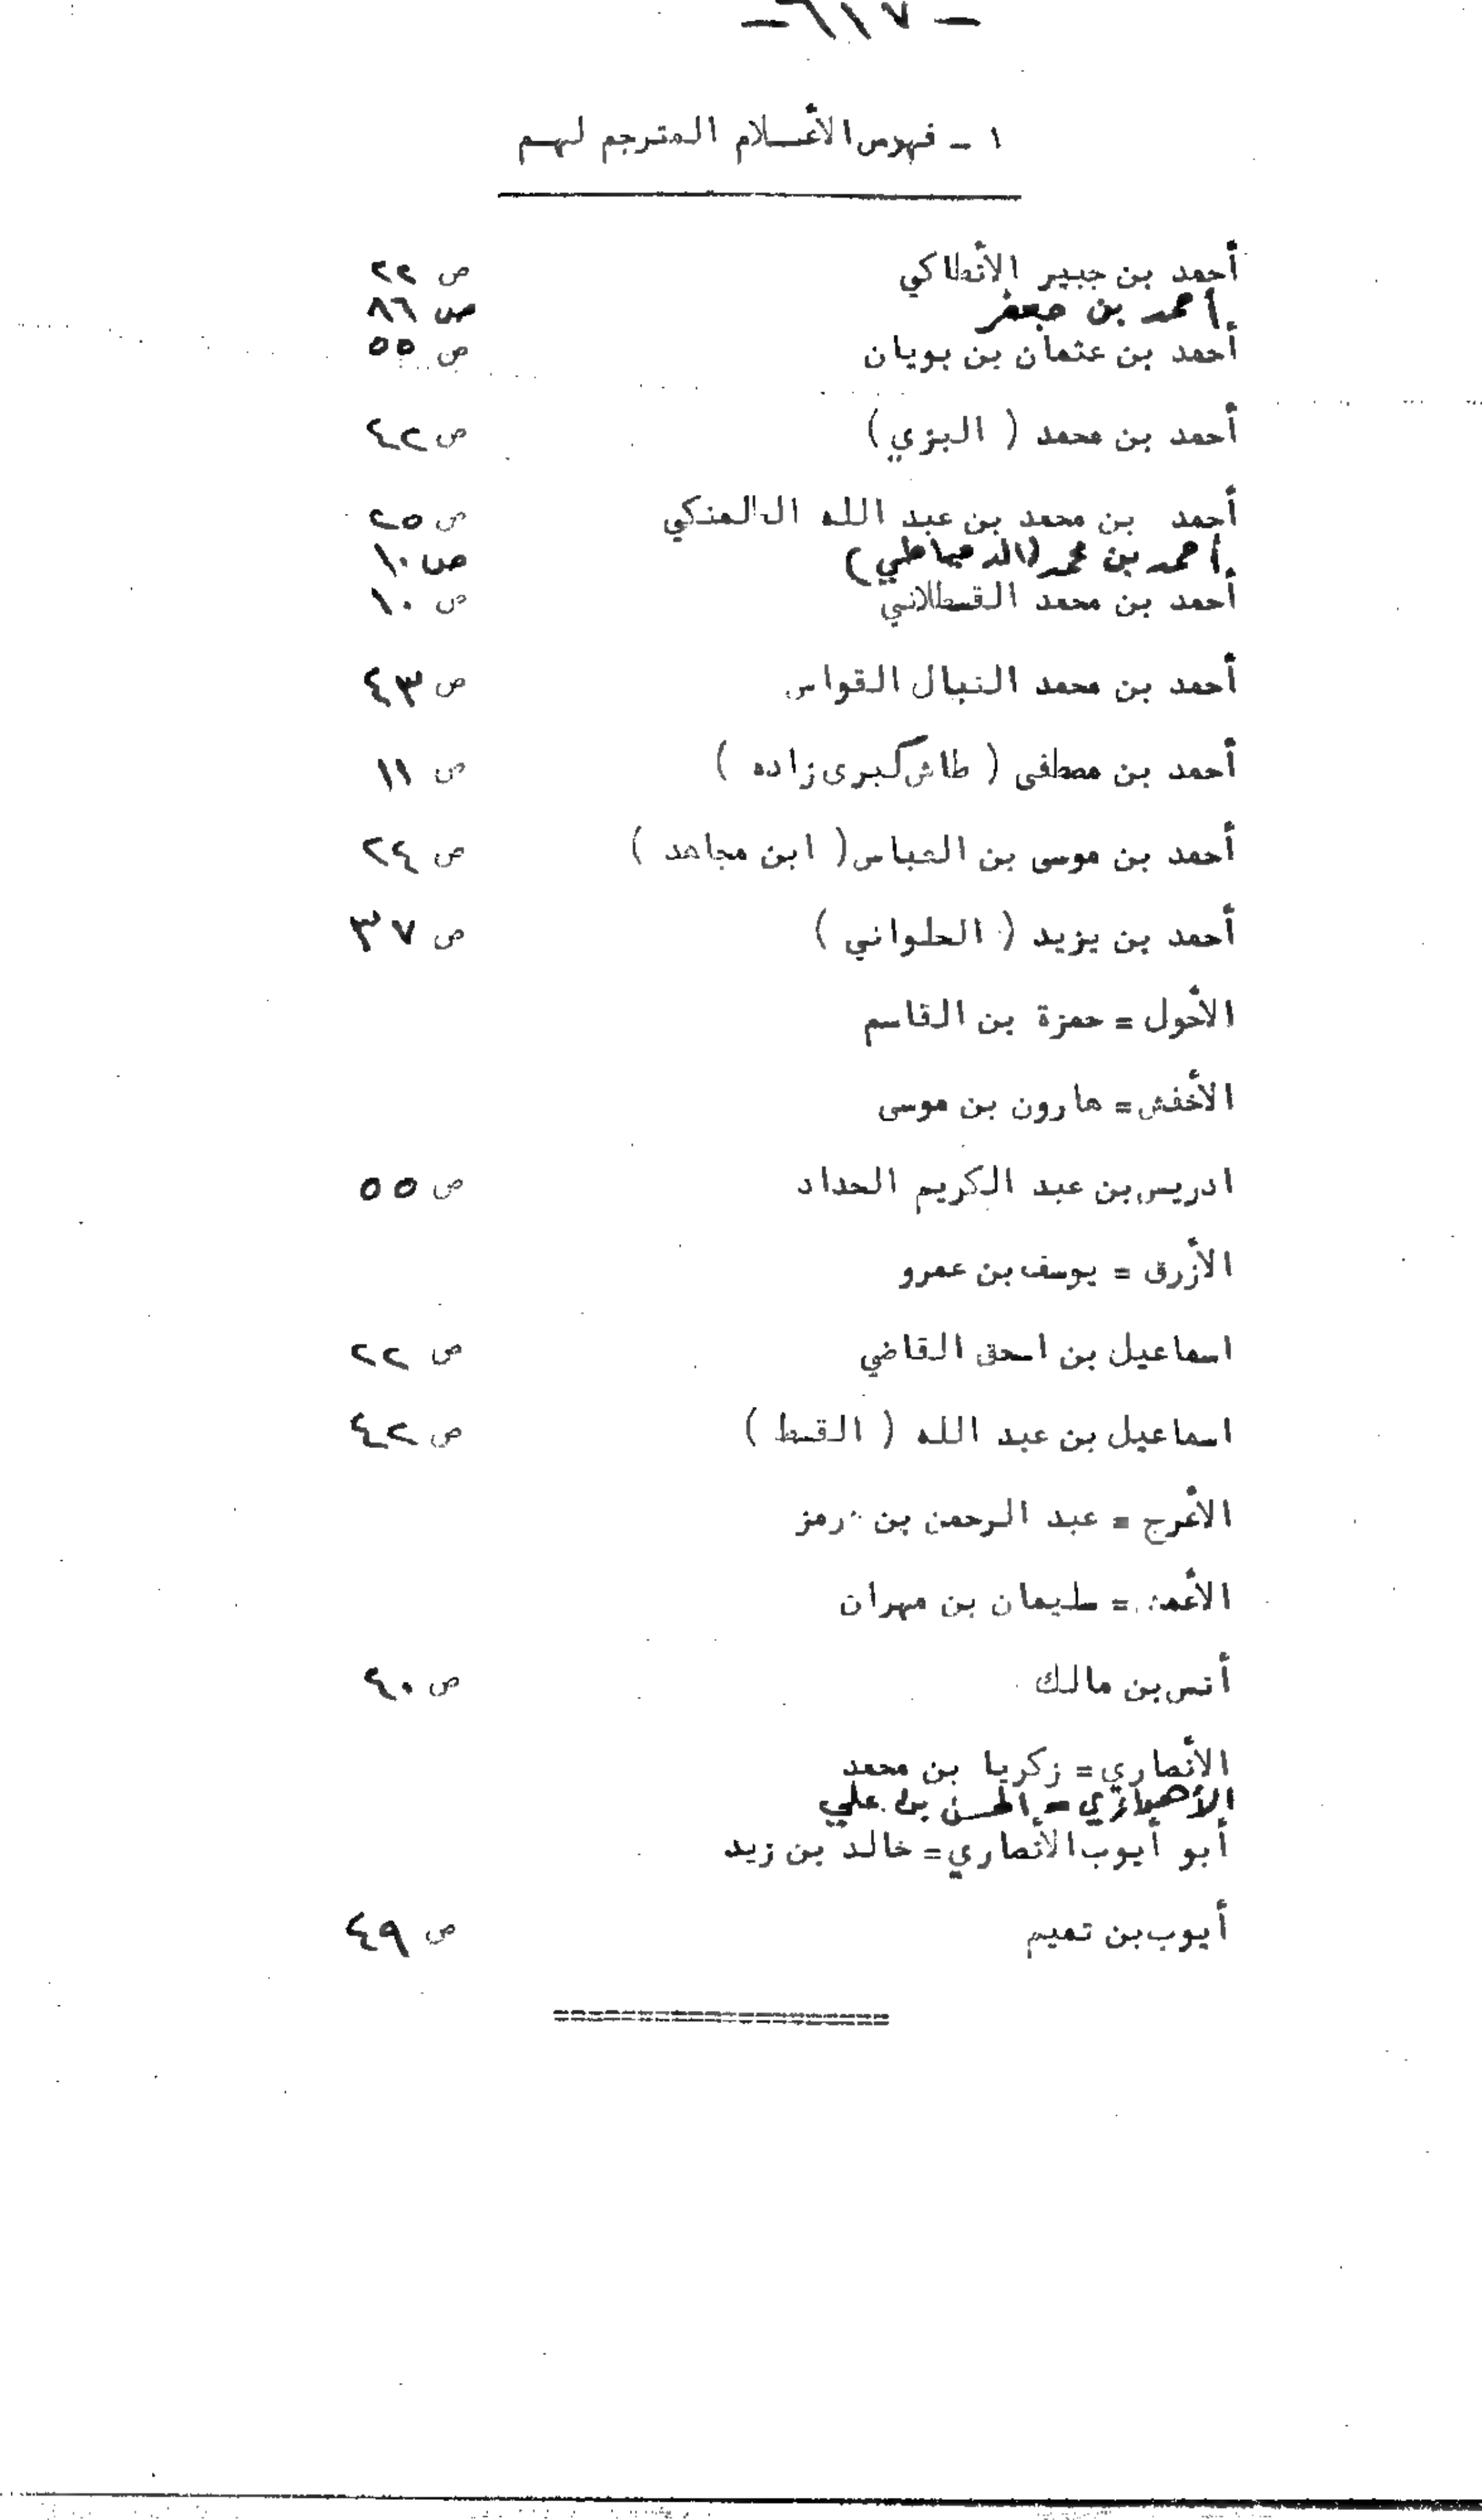 - ٦١٧ -
١ - فهرس الأعلام المترجم لهم
أحمد بن جبير الأنطاكي ص ٢٢
أحمد بن جعفر ص ٨٦
أحمد بن عثمان بن بويان ص ٥٥
أحمد بن محمد ( البزي ) ص ٤٢
أحمد بن محمد بن عبد الله الطلمنكي ص ٢٥
أحمد بن محمد (الدمياطي) ص ١٠
أحمد بن محمد القسطلاني ص ١٠
أحمد بن محمد النبال القواس ص ٤٣
أحمد بن مصطفى ( طاش كبرى زاده ) ص ١١
أحمد بن موسى بن العباس ( ابن مجاهد ) ص ٢٤
أحمد بن يزيد ( الحلواني ) ص ٣٧
الأحول = حمزة بن القاسم
الأخفش = هارون بن موسى
ادريس بن عبد الكريم الحداد ص ٥٥
الأزرق = يوسف بن عمرو
اسماعيل بن اسحق القاضي ص ٢٢
اسماعيل بن عبد الله ( القسط ) ص ٤٢
الأعرج = عبد الرحمن بن هرمز
الأعمش = سليمان بن مهران
أنس بن مالك ص ٤٠
الأنصاري = زكريا بن محمد
الأهوازي = الحسن بن علي
أبو أيوب الأنصاري = خالد بن زيد
أيوب بن تميم ص ٤٩